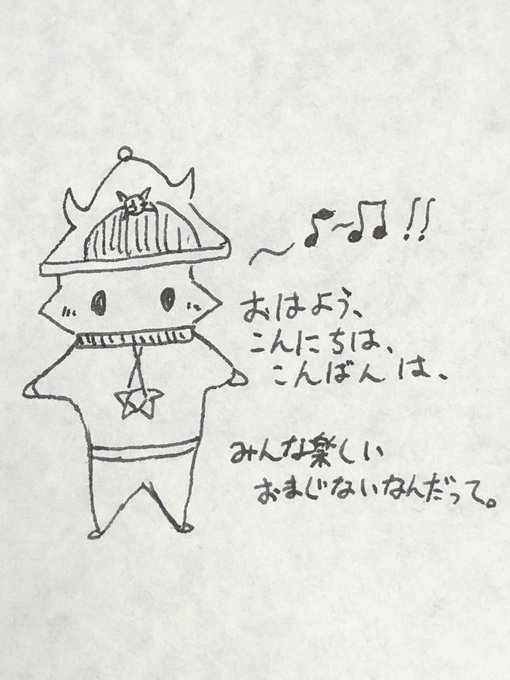 ♪〜♫!!
おはよう、
こんにちは、
こんばんは、
みんな楽しい
おまじないなんだって。